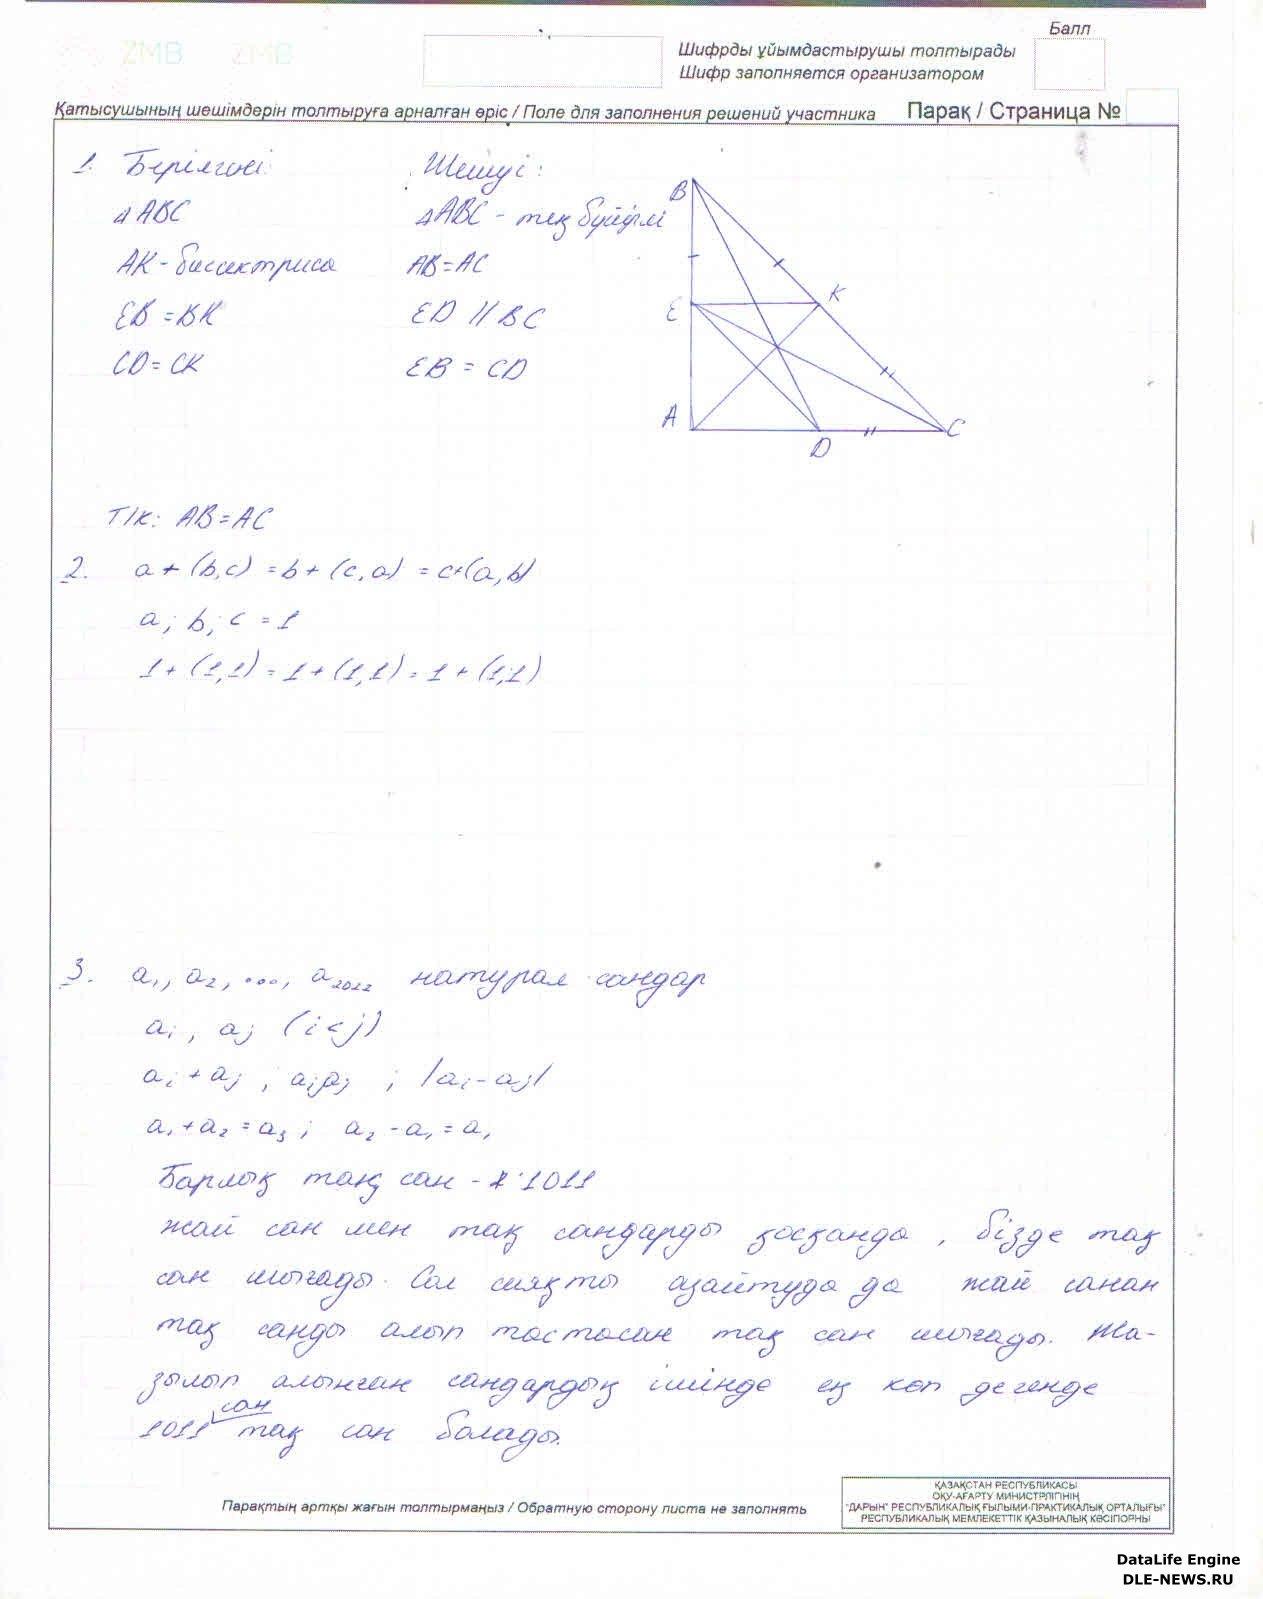 ZMB ZMB
Балл
Шифрды ұйымдастырушы толтырады
Шифр заполняется организатором
Қатысушының шешімдерін толтыруға арналған өріс / Поле для заполнения решений участника Парақ / Страница №
1. Берілгені: Шешуі:
△ABC △ABC - тең бүйірлі
AK - биссектриса AB = AC
EB = BK ED // BC
CD = CK EB = CD
B
K
E
A
D
C
Т/К: AB = AC
2. a + (b,c) = b + (c,a) = c+(a,b)
a; b; c = 1
1 + (1,1) = 1 + (1,1) = 1 + (1;1)
3. a₁, a₂, ..., a₂₀₂₂ натурал сандар
aᵢ, aⱼ (i<j)
aᵢ + aⱼ ; aᵢaⱼ ; |aᵢ - aⱼ|
a₁ + a₂ = a₃ ; a₂ - a₁ = a₁
Барлық тақ сан - 1011
жай сан мен тақ сандарды қосқанда, бізде тақ
сан шығады. Сол сияқты азайтуда да жай санан
тақ санды алып тастасақ тақ сан шығады. Жа-
зылып алынған сандардың ішінде ең көп дегенде
1011 сан тақ сан болады.
Парақтың артқы жағын толтырмаңыз / Обратную сторону листа не заполнять
ҚАЗАҚСТАН РЕСПУБЛИКАСЫ
ОҚУ-АҒАРТУ МИНИСТРЛІГІНІҢ
"ДАРЫН" РЕСПУБЛИКАЛЫҚ ҒЫЛЫМИ-ПРАКТИКАЛЫҚ ОРТАЛЫҒЫ"
РЕСПУБЛИКАЛЫҚ МЕМЛЕКЕТТІК ҚАЗЫНАЛЫҚ КӘСІПОРНЫ
DataLife Engine
DLE-NEWS.RU